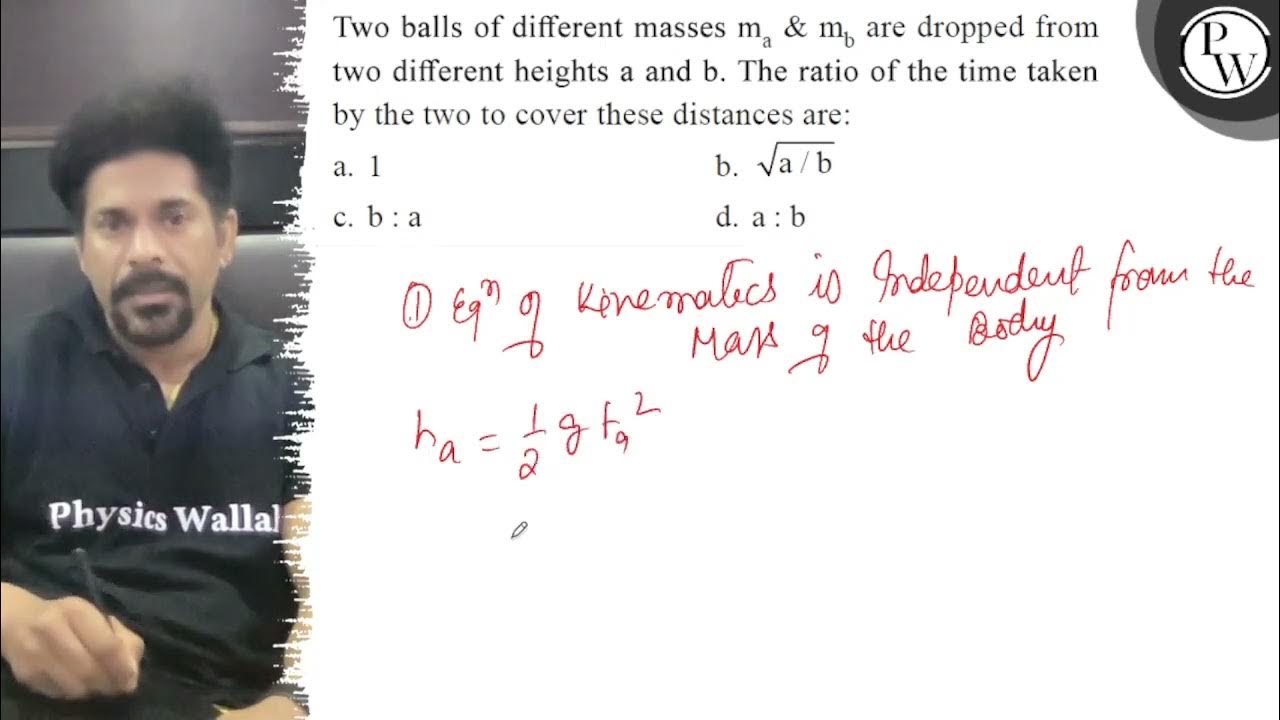 Two balls of different masses mₐ & m_b are dropped from
two different heights a and b. The ratio of the time taken
by the two to cover these distances are:
a. 1 b. √a / b
c. b : a d. a : b
① Eqⁿ of Kinematics is Independent from the
Mass of the Body
hₐ = 1/2 g tₐ²
Physics Wallal
PW